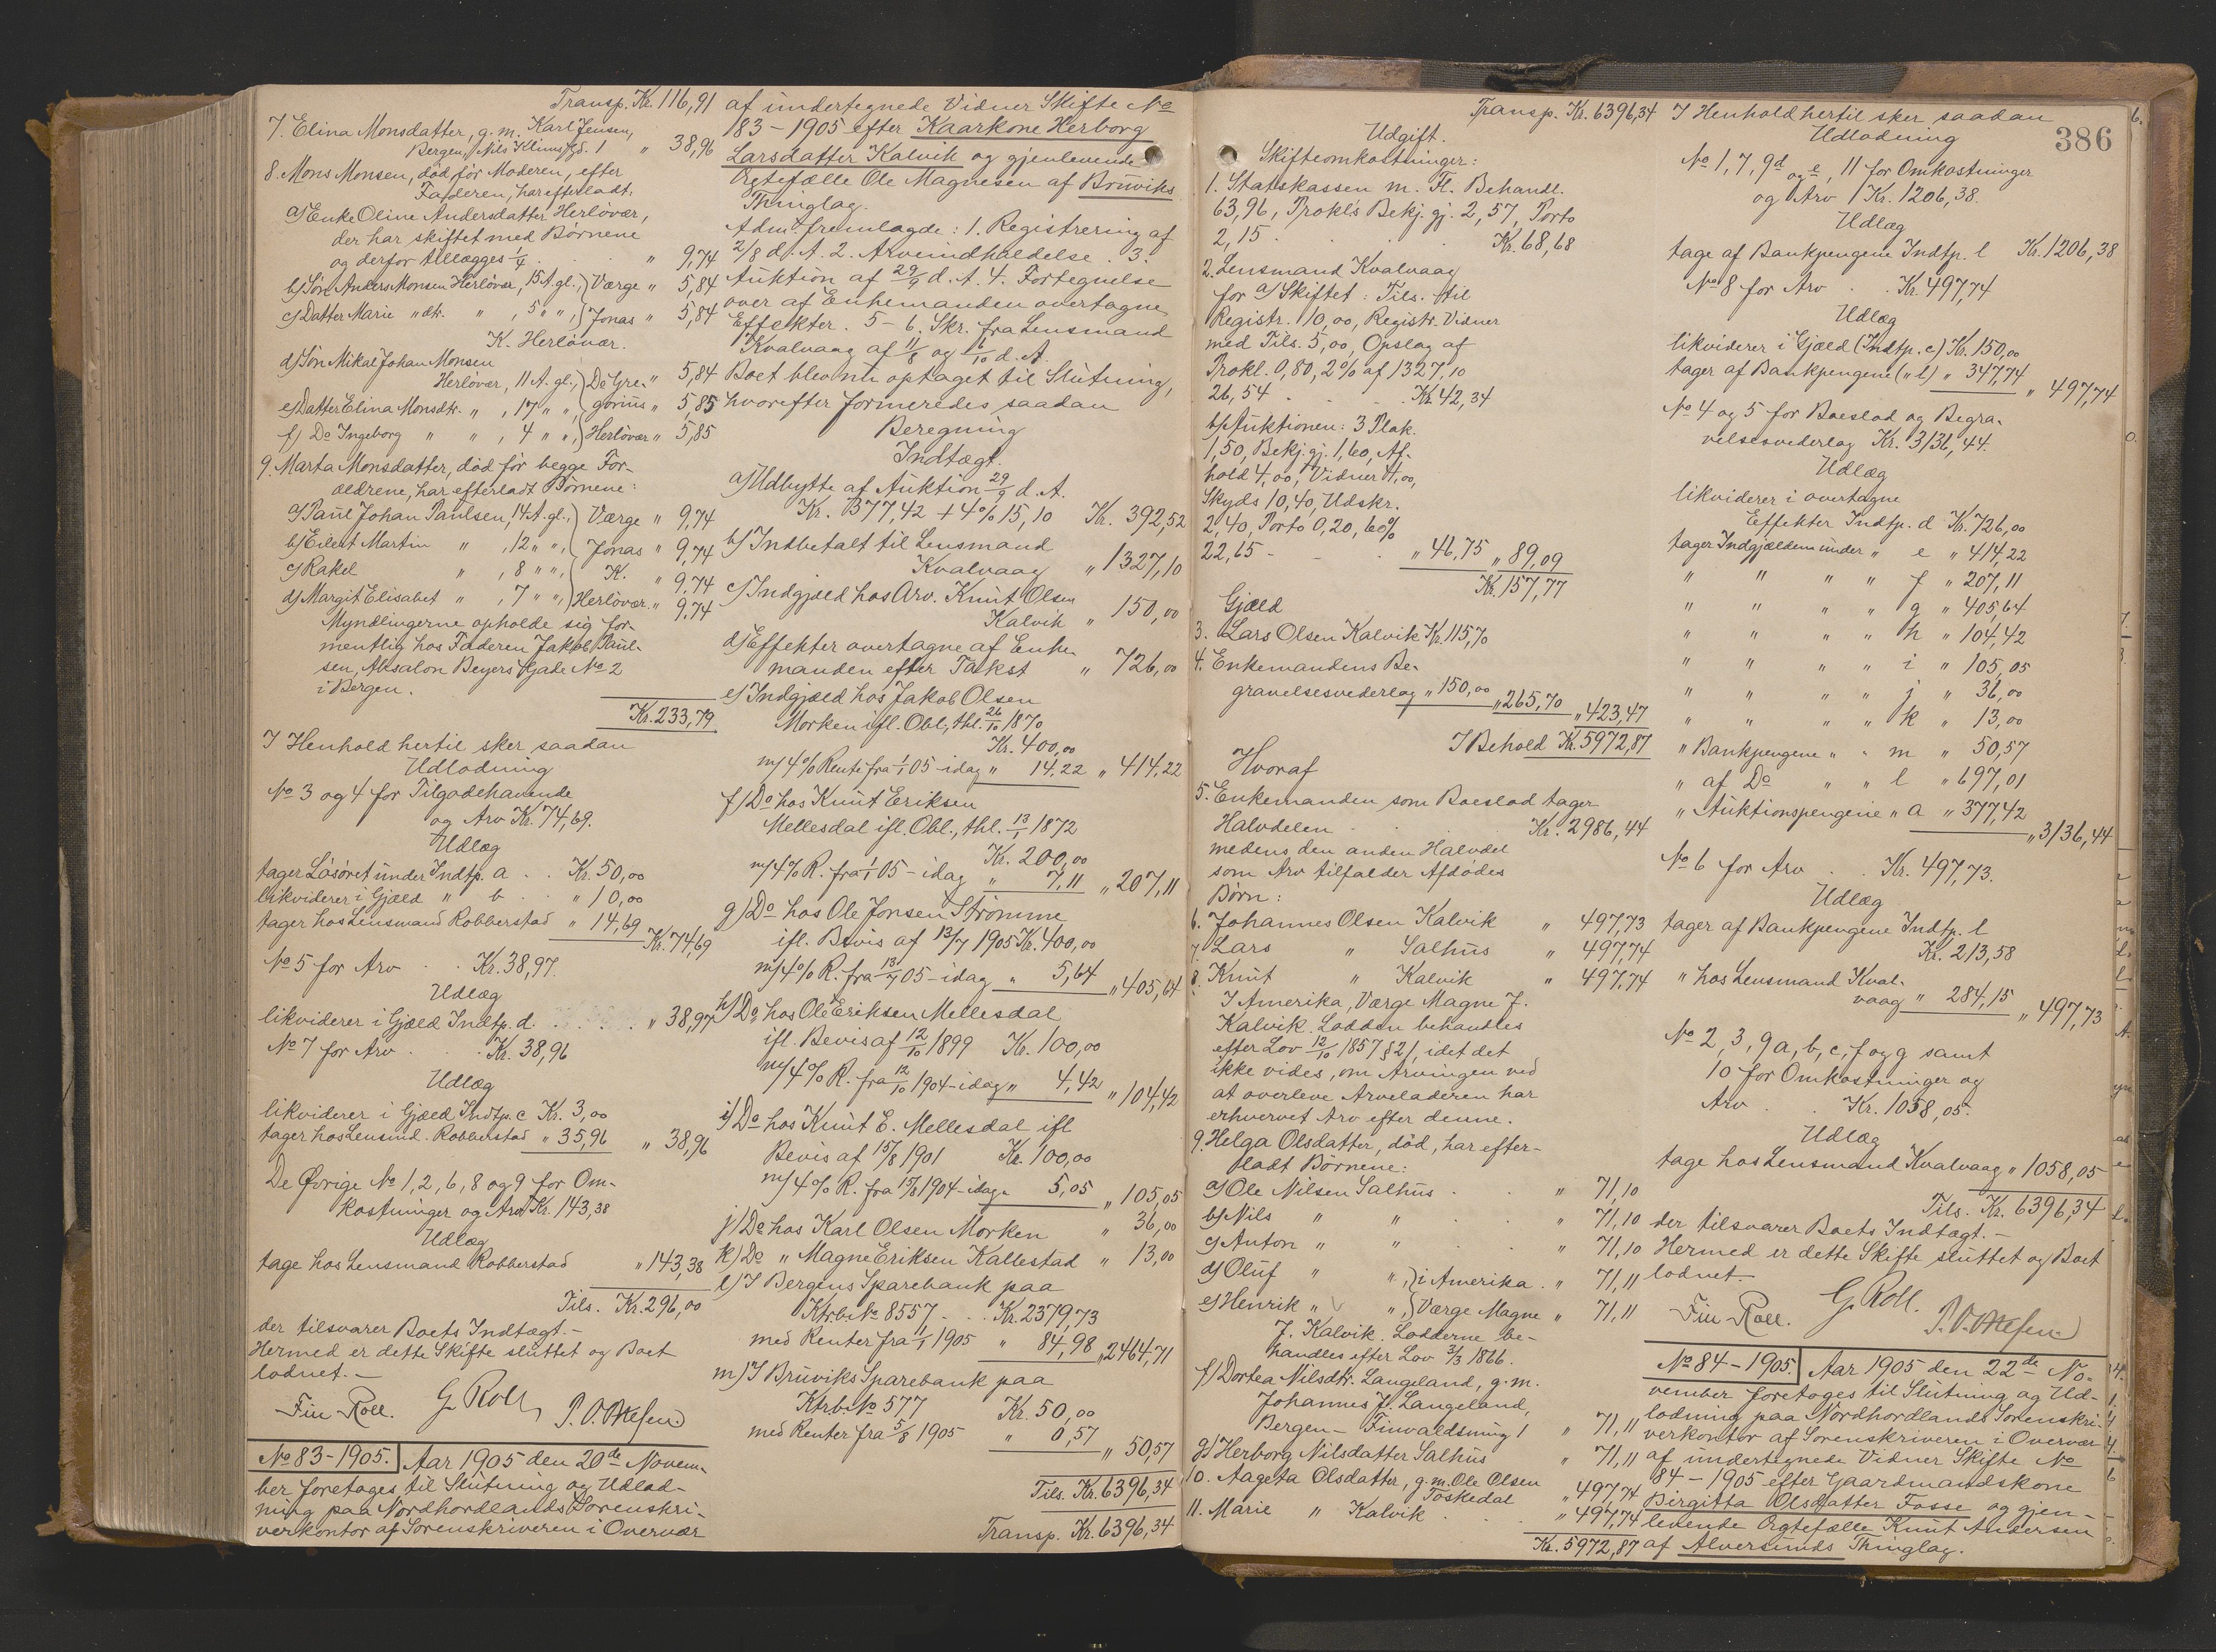 Transp. Kr. 116,91
7. Elina Monsdatter, g. m. Karl Jensen,
Bergen, Nils Klims Gd. 1 " 38,96
8. Mons Monsen, död för Moderen, efter
Faderen, har efterladt:
a) Enke Oline Andersdatter Herlövær,
der har skiftet med Börnene
og derfor tillægges 1/4 . . " 9,74
b) Sön Anders Monsen Herlövær, 15 A. gl., Værge " 5,84
c) Datter Marie " dtr. " , 5 " " , Jonas " 5,84
K. Herlövær.
d) Sön Mikal Johan Monsen
Herlövær, 11 A. gl., Do Gre- " 5,84
e) Datter Elina Monsdtr. " , 17 " " , goriús " 5,85
f) Do Ingeborg " " , 4 " " , Herlövær " 5,85
9. Marta Monsdatter, död för begge For-
ældrene, har efterladt Börnene:
a) Paul Johan Paulsen, 14 A. gl., Værge " 9,74
b) Eilert Martin " , 12 " " , Jonas " 9,74
c) Rakel " , 8 " " , K. " 9,74
d) Margit Elisabet " , 7 " " , Herlövær. " 9,74
Myndlingerne opholde sig for-
mentlig hos Faderen Jakob Paúl-
sen, Absalon Beyers Gade No 2
i Bergen.
Kr. 233,79
I Henhold hertil sker saadan
Udlodning
No 3 og 4 for Tilgodehavende
og Arv Kr. 74,69.
Udlæg
tager Lösöret únder Indtp. a . . Kr. 50,00
likviderer i Gjæld " b . " 10,00
tager hos Lensmand Robberstad " 14,69
Kr. 74,69
No 5 for Arv . . Kr. 38,97.
Udlæg
likviderer i Gjæld Indtp. d. . . . . " 38,97
No 7 for Arv . . Kr. 38,96
Udlæg
likviderer i Gjæld Indtp. c Kr. 3,00
tager hos Lensmd. Robberstad " 35,96 " 38,96
De Övrige No 1, 2, 6, 8 og 9 for Om-
kostninger og Arv Kr. 143,38
Udlæg
tage hos Lensmand Robberstad " 143,38
Tils. Kr. 296,00
der tilsvarer Boets Indtægt. -
Hermed er dette Skifte slúttet og Boet
lodnet. -
Fin Roll. G Roll,
No 83 - 1905. Aar 1905 den 20de Novem-
ber foretoges til Slútning og Udlod-
ning paa Nordhordlands Sorenskri-
verkontor af Sorenskriveren i Overvær
af úndertegnede Vidner Skifte No
183 - 1905 efter Kaarkone Herborg
Larsdatter Kalvik og gjenlevende
Ægtefælle Ole Magnesen af Brúviks
Thinglag.
Adm. fremlagde: 1. Registrering af
2/8 d. A. 2. Arveindkaldelse. 3.
Aúktion af 29/9 d. A. 4. Fortegnelse
over af Enkemanden overtagne
Effekter. 5 - 6. Skr. fra Lensmand
Kvalvaag af 11/8 og 6/10 d. A.
Boet blev nú optaget til Slútning,
hvorefter formeredes saadan
Beregning
Indtægt.
a) Udbytte af Aúktion 29/9 d. A.
Kr. 377,42 + 4% 15,10 Kr. 392,52
b) Indbetalt til Lensmand
Kvalvaag " 1327,10
c) Indgjæld hos Arv. Knút Olsen
Kalvik " 150,00
d) Effekter overtagne af Enke-
manden efter Takst " 726,00
e) Indgjæld hos Jakob Olsen
Morken ifl. Obl., thl. 26/10 1870
Kr. 400,00
m/ 4% Rente fra 1/1 05 - idag " 14,22 " 414,22
f) Do hos Knút Eriksen
Mellesdal ifl. Obl., thl. 13/1 1872
Kr. 200,00
m/ 4% R. fra 1/1 05 - idag " 7,11 " 207,11
g) Do hos Ole Jonsen Strömme
ifl. Bevis af 13/7 1905 Kr. 400,00
m/ 4% R. fra 13/7 05 - idag " 5,64 " 405,64
h) Do hos Ole Eriksen Mellesdal
ifl. Bevis af 12/10 1899 Kr. 100,00
m/ 4% R. fra 12/10 1904 - idag " 4,42 " 104,42
i) Do hos Knút E. Mellesdal ifl
Bevis af 15/8 1901 Kr. 100,00
m/ 4% R. fra 15/8 1904 - idag " 5,05 " 105,05
j) Do hos Karl Olsen Morken " 36,00
k) Do " Magne Eriksen Kallestad " 13,00
l) I Bergens Sparebank paa
Ktrb. No 8557 . . Kr. 2379,73
med Renter fra 1/1 1905 " 84,98 " 2464,71
m) I Brúviks Sparebank paa
Ktrb. No 577 Kr. 50,00
med Renter fra 5/8 1905 " 0,57 " 50,57
Tils. Kr. 6396,34
Transp. Kr. 6396,34
Transp. Kr. 6396,34
Udgift.
Skifteomkostninger:
1. Statskassen m. Fl. Behandl.
63,96, Prokl's Bekj. gj. 2,57, Porto
2,15 . . . . Kr. 68,68
2. Lensmand Kvalvaag
for a) Skiftet: Tils. til
Registr. 10,00, Registr. Vidner
med Tils. 5,00, Opslag af
Prokl. 0,80, 2% af 1327,10
26,54 . . . Kr. 42,34
b) Aúktionen: 3 Plak.
1,50, Bekj. gj. 1,60, Af-
hold 4,00, Vidner 4,00,
Skyds 10,40, Udskr.
2,40, Porto 0,20, 60%
22,65 - . . " 46,75 " 89,09
Kr. 157,77
Gjæld
3. Lars Olsen Kalvik Kr. 115,70
4. Enkemandens Be-
gravelsesvederlag " 150,00 " 265,70 " 423,47
I Behold Kr. 5972,87
Hvoraf
5. Enkemanden som Boeslod tager
Halvdelen . . Kr. 2986,44
medens den anden Halvdel
som Arv tilfalder Afdödes
Börn:
6. Johannes Olsen Kalvik " 497,73
7. Lars " Salhús " 497,74
8. Knút " Kalvik " 497,74
I Amerika, Værge Magne J.
Kalvik. Lodden behandles
efter Lov 12/10 1857 § 21, idet det
ikke vides, om Arvingen ved
at overleve Arveladeren har
erhvervet Arv efter denne.
9. Helga Olsdatter, död, har efter-
ladt Börnene:
a) Ole Nilsen Salhús . . " 71,10
b) Nils " " . . " 71,10
c) Anton " " . . " 71,10
d) Olúf " " , i Amerika . " 71,11
e) Henrik " " , Værge Magne " 71,11
J. Kalvik. Lodderne be-
handles efter Lov 3/3 1866.
f) Dortea Nilsdtr. Langeland, g. m.
Johannes J. Langeland,
Bergen - Finvaldsmúg 1 " 71,11
g) Herborg Nilsdatter Salhús " 71,11
10. Aageta Olsdatter, g. m. Ole Olsen
Toskedal " 497,74
11. Marie " Kalvik . . . " 497,74
Kr. 5972,87
386
I Henhold hertil sker saadan
Udlodning
No 1, 7, 9d og e, 11 for Omkostninger
og Arv Kr. 1206,38.
Udlæg
tage af Bankpengene Indtp. l Kr. 1206,38
No 8 for Arv . . Kr. 497,74
Udlæg
likviderer i Gjæld (Indtp. c) Kr. 150,00
tager af Bankpengene (" l) " 347,74 " 497,74
No 4 og 5 for Boeslod og Begra-
velsesvederlag Kr. 3136,44.
Udlæg
likviderer i overtagne
Effekter Indtp. d Kr. 726,00
tager Indgjælden únder " e " 414,22
" " " " f " 207,11
" " " " g " 405,64
" " " " h " 104,42
" " " " i " 105,05
" " " " j " 36,00
" " " " k " 13,00
" Bankpengene " " m " 50,57
" af Do " " l " 697,01
" Aúktionspengene " a " 377,42
" 3136,44
No 6 for Arv . . Kr. 497,73.
Udlæg
tager af Bankpengene Indtp. l
Kr. 213,58
" hos Lensmand Kval-
vaag " 284,15 " 497,73
No 2, 3, 9a, b, c, f og g samt
10 for Omkostninger og
Arv . . Kr. 1058,05.
Udlæg
tage hos Lensmand Kvalvaag " 1058,05
Tils. Kr. 6396,34
der tilsvarer Boets Indtægt. -
Hermed er dette Skifte slúttet og Boet
lodnet. -
Fin Roll. G. Roll.
No 84 - 1905. Aar 1905 den 22de No-
vember foretoges til Slútning og Ud-
lodning paa Nordhordlands Sorenskri-
verkontor af Sorenskriveren i Overvær
af undertegnede Vidner Skifte No
84 - 1905 efter Gaardmandskone
Birgitta Olsdatter Fosse og gjen-
levende Ægtefælle Knút Andersen
af Alversúnds Thinglag.